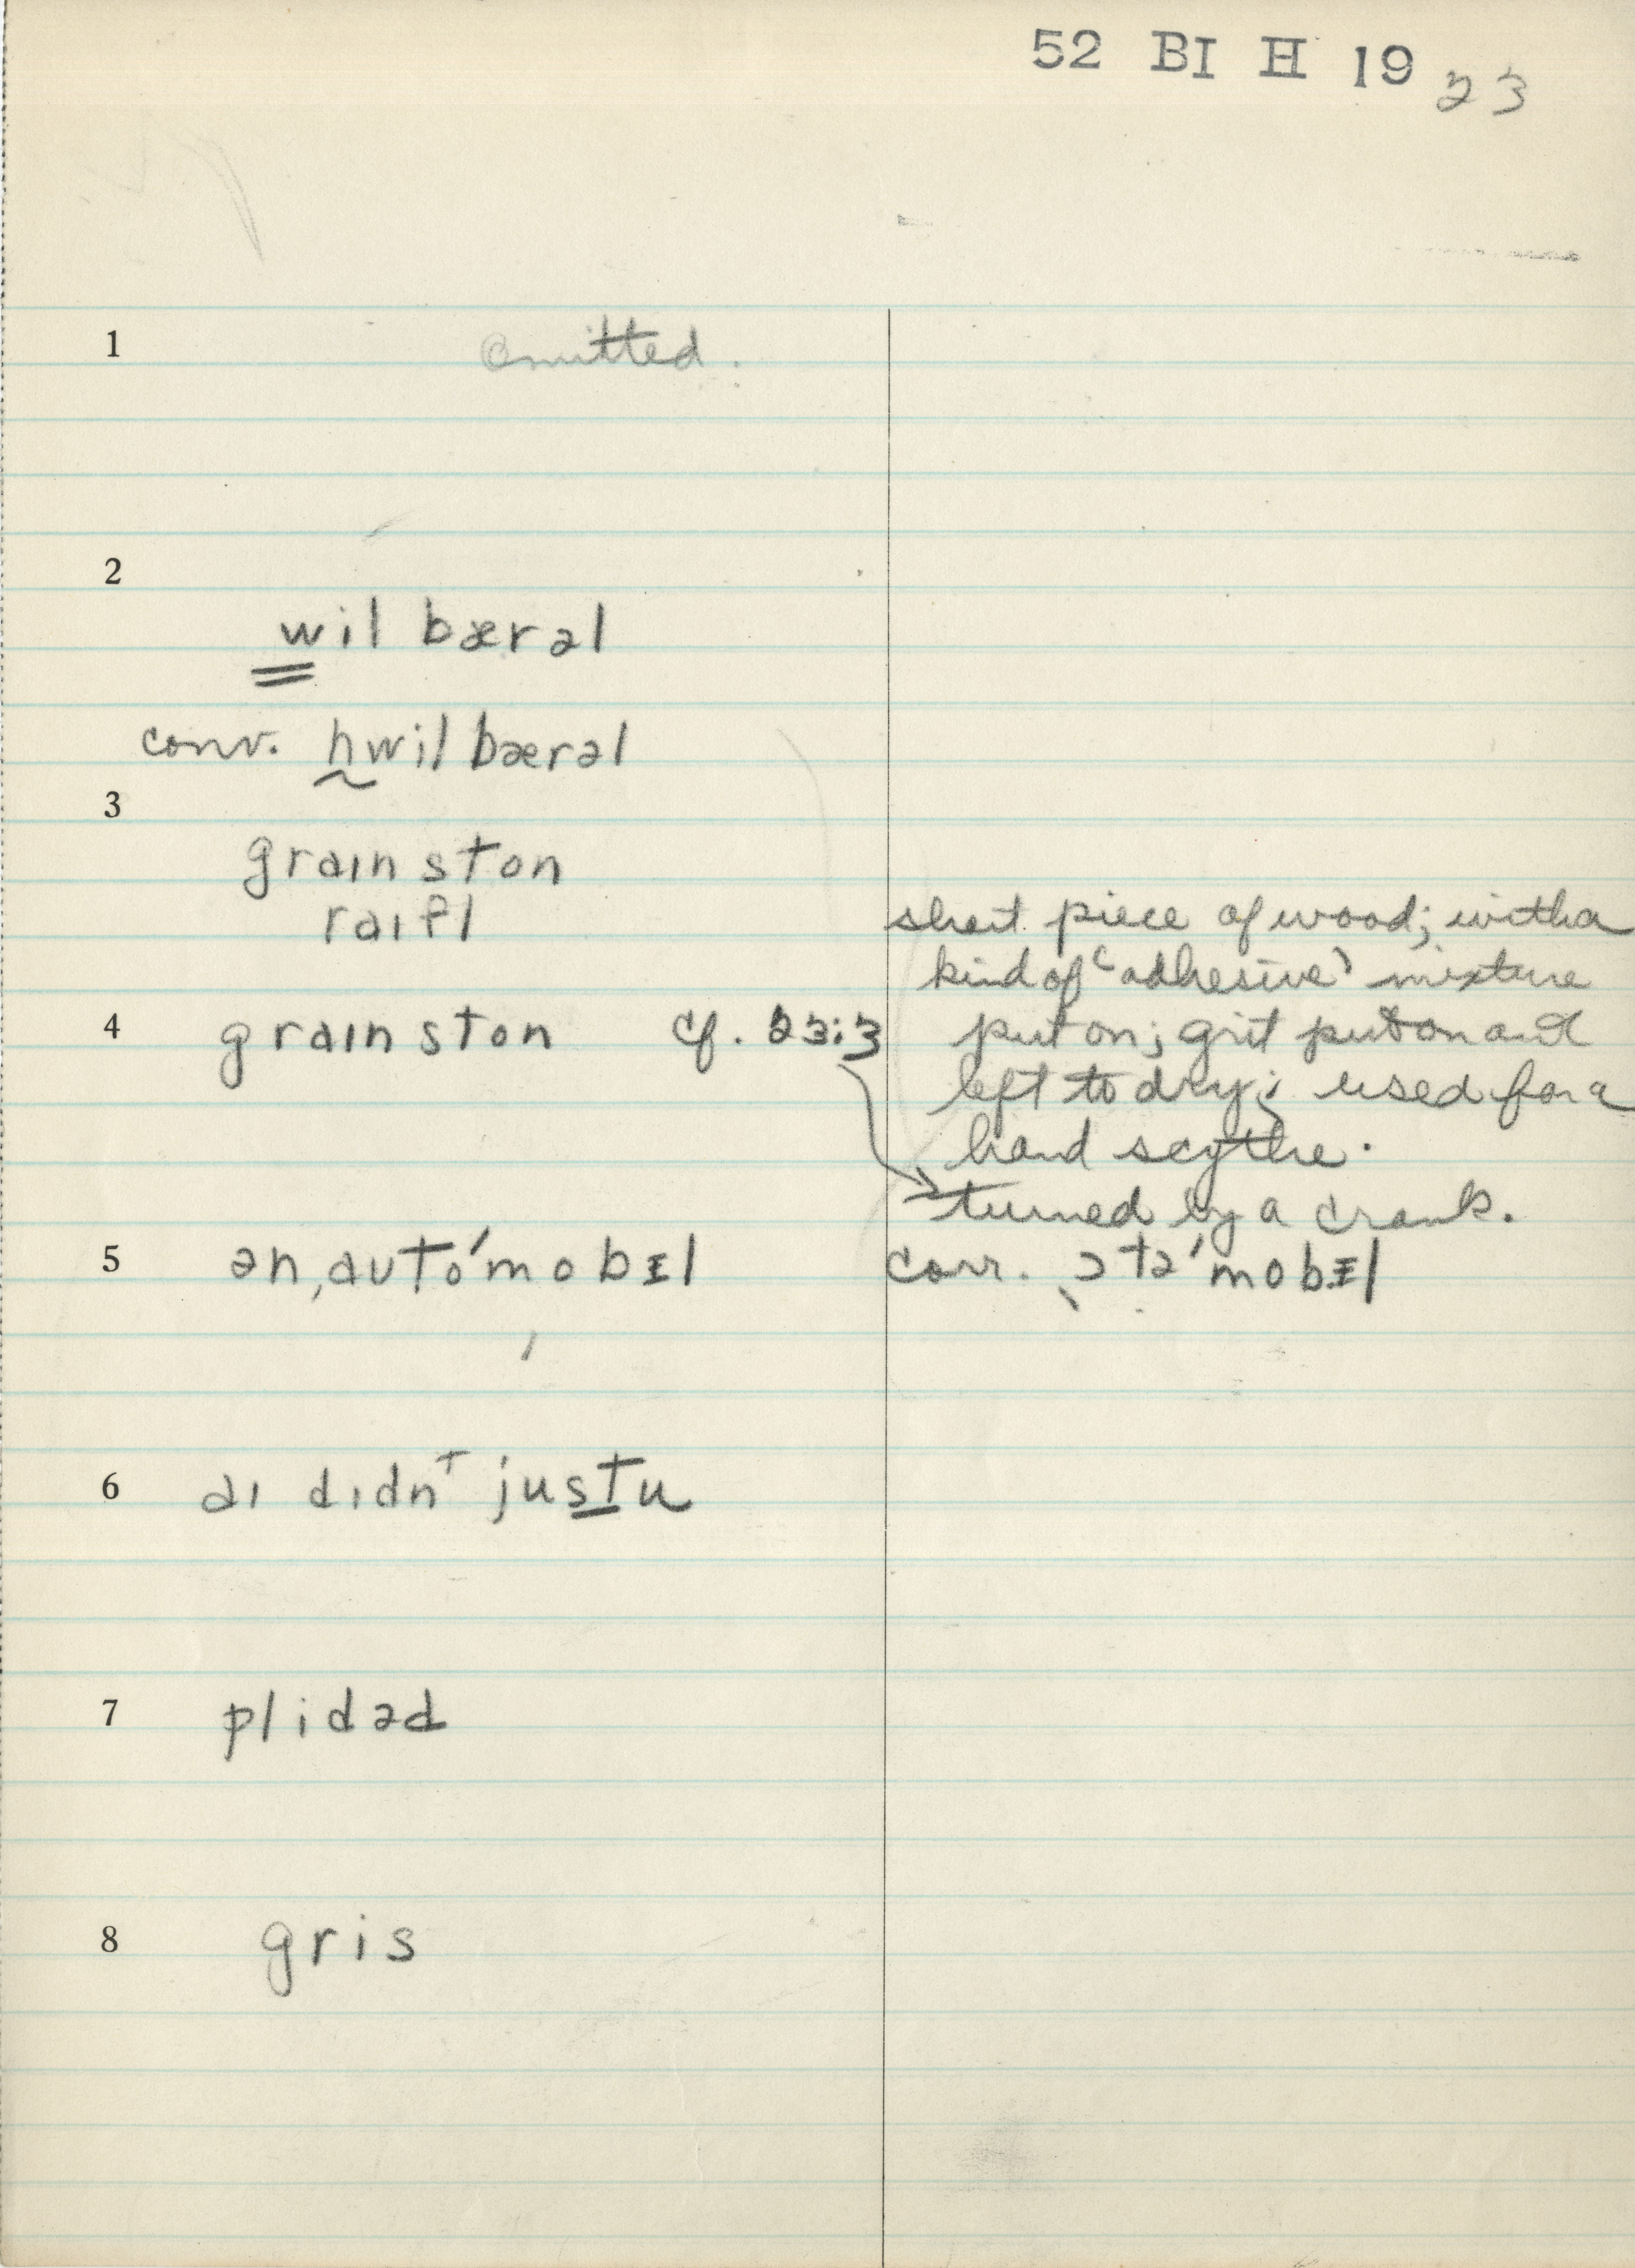 52 BI H 19 23
1 omitted.
2
wil bærəl
conv. hwil bærəl
3
graɪn ston
raɪfl short piece of wood; with a
kind of ‘adhesive’ mixture
4 graɪn ston cf. 23:3 put on; grit put on and
left to dry; used for a
hand scythe.
turned by a crank.
5 ən ˌautóˈmobᵻl corr. ˌɔtəˈmobᵻl
6 aɪ dɪdnᵗ justu
7 plidəd
8 gris